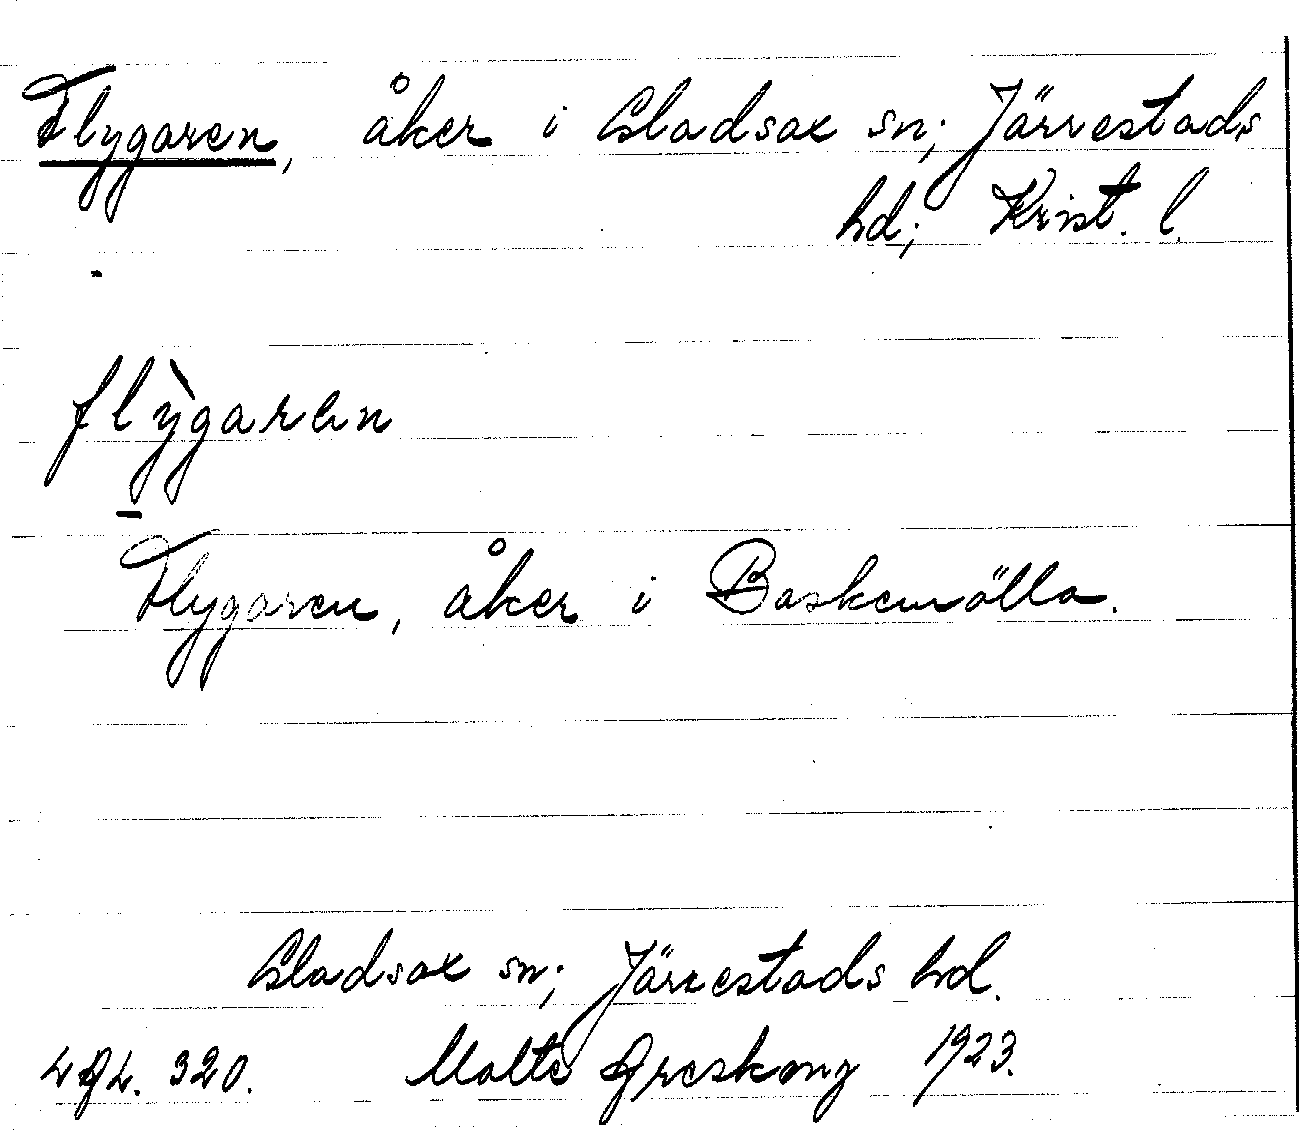 Flygaren, åker i Gladsax sn; Järrestads
hd; Krist. l.
flỳgaren
Flygaren, åker i Baskemölla.
Gladsax sn; Järrestads hd.
320. Malte 1923.